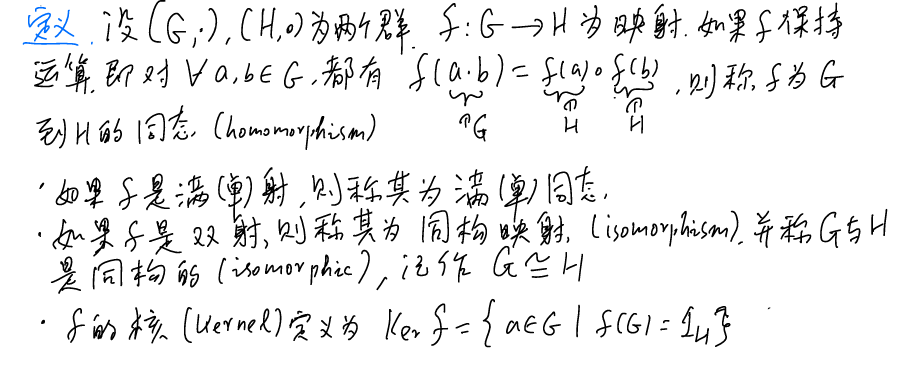 定义. 设(G,·), (H,∘)为两个群. f: G → H 为映射. 如果f保持
运算, 即对 ∀ a,b ∈ G, 都有 f(a·b) = f(a)∘f(b), 则称 f为 G
∈G ∈H ∈H
到H的同态. (homomorphism)
· 如果 f 是满(单)射, 则称其为 满(单)同态.
· 如果 f 是 双射, 则称其为 同构映射. (isomorphism). 并称G与H
是同构的 (isomorphic), 记作 G ≅ H
· f的核 (Kernel)定义为 Ker f = { a∈G | f(G) = 1_H }